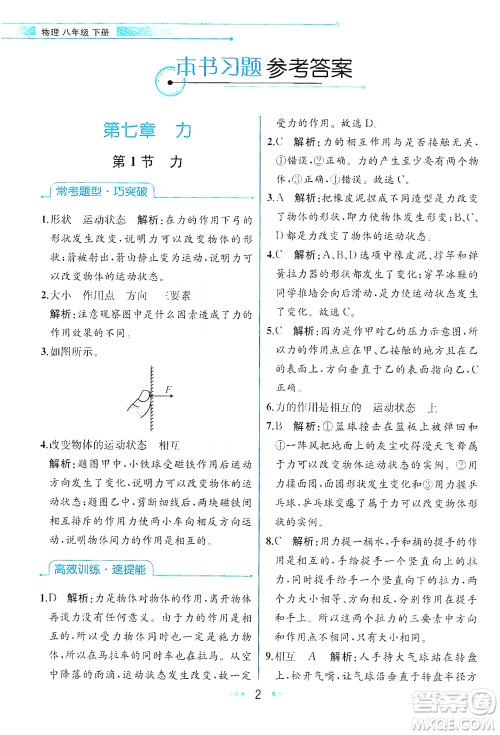 物理 八年级 下册
本书习题 参考答案
第七章 力
第1节 力
常考题型·巧突破
1.形状 运动状态 解析:在力的作用下弓的
形状发生改变,说明力可以改变物体的形
状;箭被射出,箭由静止变为运动,说明力可
以改变物体的运动状态。
2.大小 作用点 方向 三要素
解析:注意观察图中是什么因素造成了力的
作用效果的不同。
3.如图所示。
F
4.改变物体的运动状态 相互
解析:题图甲中,小铁球受磁铁作用后运动
方向发生改变,说明力可以改变物体的运动
状态;题图乙中,剪断细线后,两块磁铁间的
相互排斥的力使两小车向相反方向运动,说
明力的作用是相互的。
高效训练·速提能
1.D 解析:力是物体对物体的作用,离开物体
再谈力没有任何意义。由于力的作用是相
互的,因此一个物体是施力物体的同时也是
受力物体。力可以产生在不直接接触的物
体之间,如磁铁吸引铁钉。力也可以产生在
直接接触的物体之间,如马拉车的力。但直
接接触的物体间不一定有力的作用。从高
空中降落的物体,虽不与地球接触,但也要
受力的作用。故选D。
2.C 解析:力的作用与物体是否接触无关,
①错误,②正确。力的作用离不开两个物
体,③正确,④错误。故选C。
3.A 解析:把橡皮泥捏成不同造型是力使物
体的形状发生变化,故A符合题意;B、C、
D选项都是力改变了物体的运动状态。
4.C 解析:A、B、D选项中橡皮泥、撑竿和弹
簧拉力器的形状都发生了变化;穿旱冰鞋的
同学推墙时会后退,说明他的运动状态发生
了变化。故选C。
5.C 解析:因为是作甲对乙的压力示意图,所
以力的作用点应在乙的表面上,力应画在乙
的上表面,方向垂直于乙的表面且指向乙。
故选C。
6.力的作用是相互的 运动状态 上
7.B 解析:①篮球撞击在篮板上被弹回和
②一阵风把地面上的灰尘吹得漫天飞舞都
是力改变了物体的运动状态。③用力捏乒
乓球,乒乓球凹进去和④用手拍桌面,手感
到疼都可以说明力的作用是相互的。
8.C 解析:用力提一桶水,手和桶的提手的作
用力是相互的,手给提手一个竖直向上的
力,提手给手一个竖直向下的力,这两个力
大小相等、方向相反,但作用在不同的物体
上。故选C。
9.相互 A 解析:人手持大气球站在转盘
上,松开气嘴,大气球会喷出与转盘半径方
2